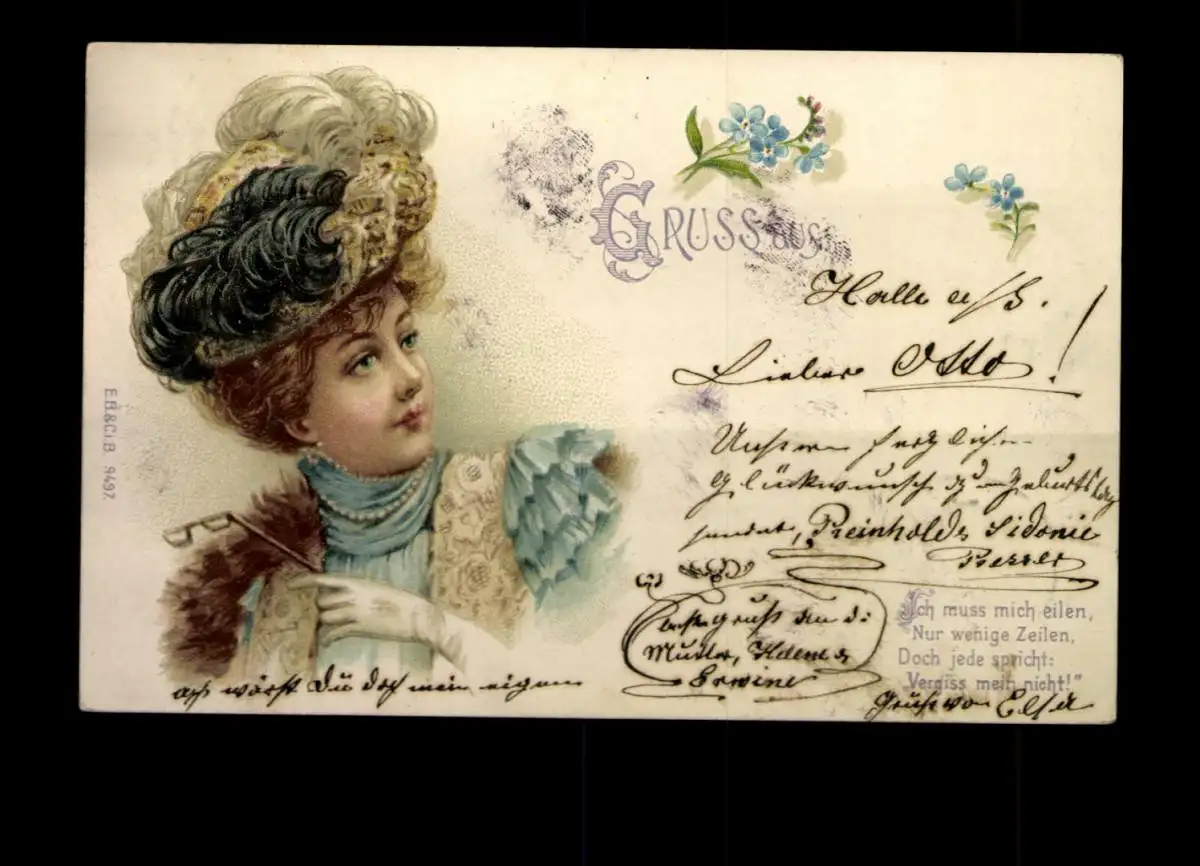 GRUSS aus
Halle a/S.
Lieber Otto!
Unseren herzlichen
Glückwunsch z. Geburtstag
sendet, Reinhold & Sidonie
Gruß an d:
Mutter, &
Erwine
Ich muss mich eilen,
Nur wenige Zeilen,
Doch jede spricht:
„Vergiss mein nicht!"
Gruß von Elsa
ach wärst Du doch mein eigen
E.B.&C.i.B. 9497.